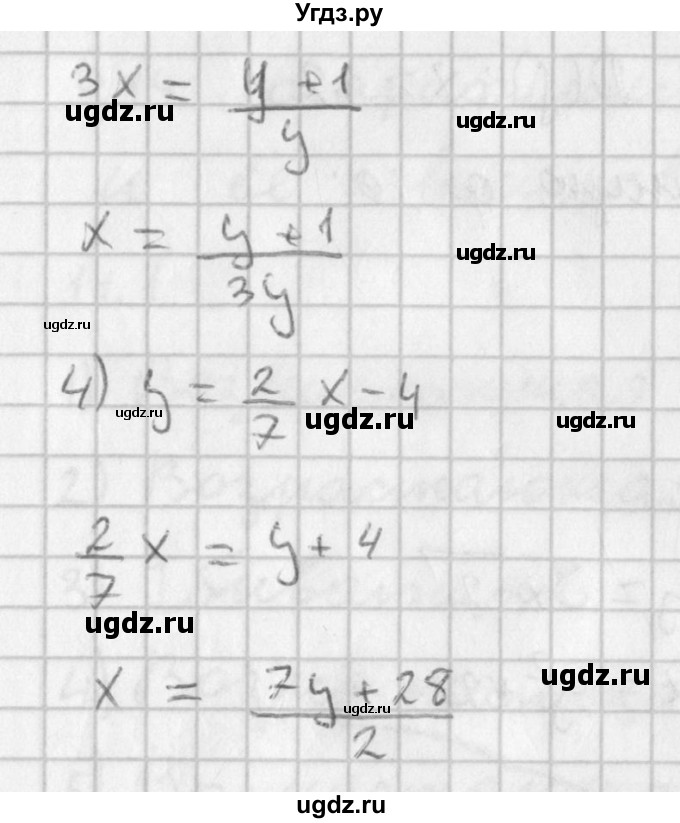 Угдз.ру
3x = (y + 1)/y
ugdz.ru
ugdz.ru
x = (y + 1)/3y
ugdz.ru
ugdz.ru
4) y = 2/7 x - 4
ugdz.ru
ugdz.ru
ugdz.ru
2/7 x = y + 4
ugdz.ru
x = (7y + 28)/2
ugdz.ru
ugdz.ru
ugdz.ru